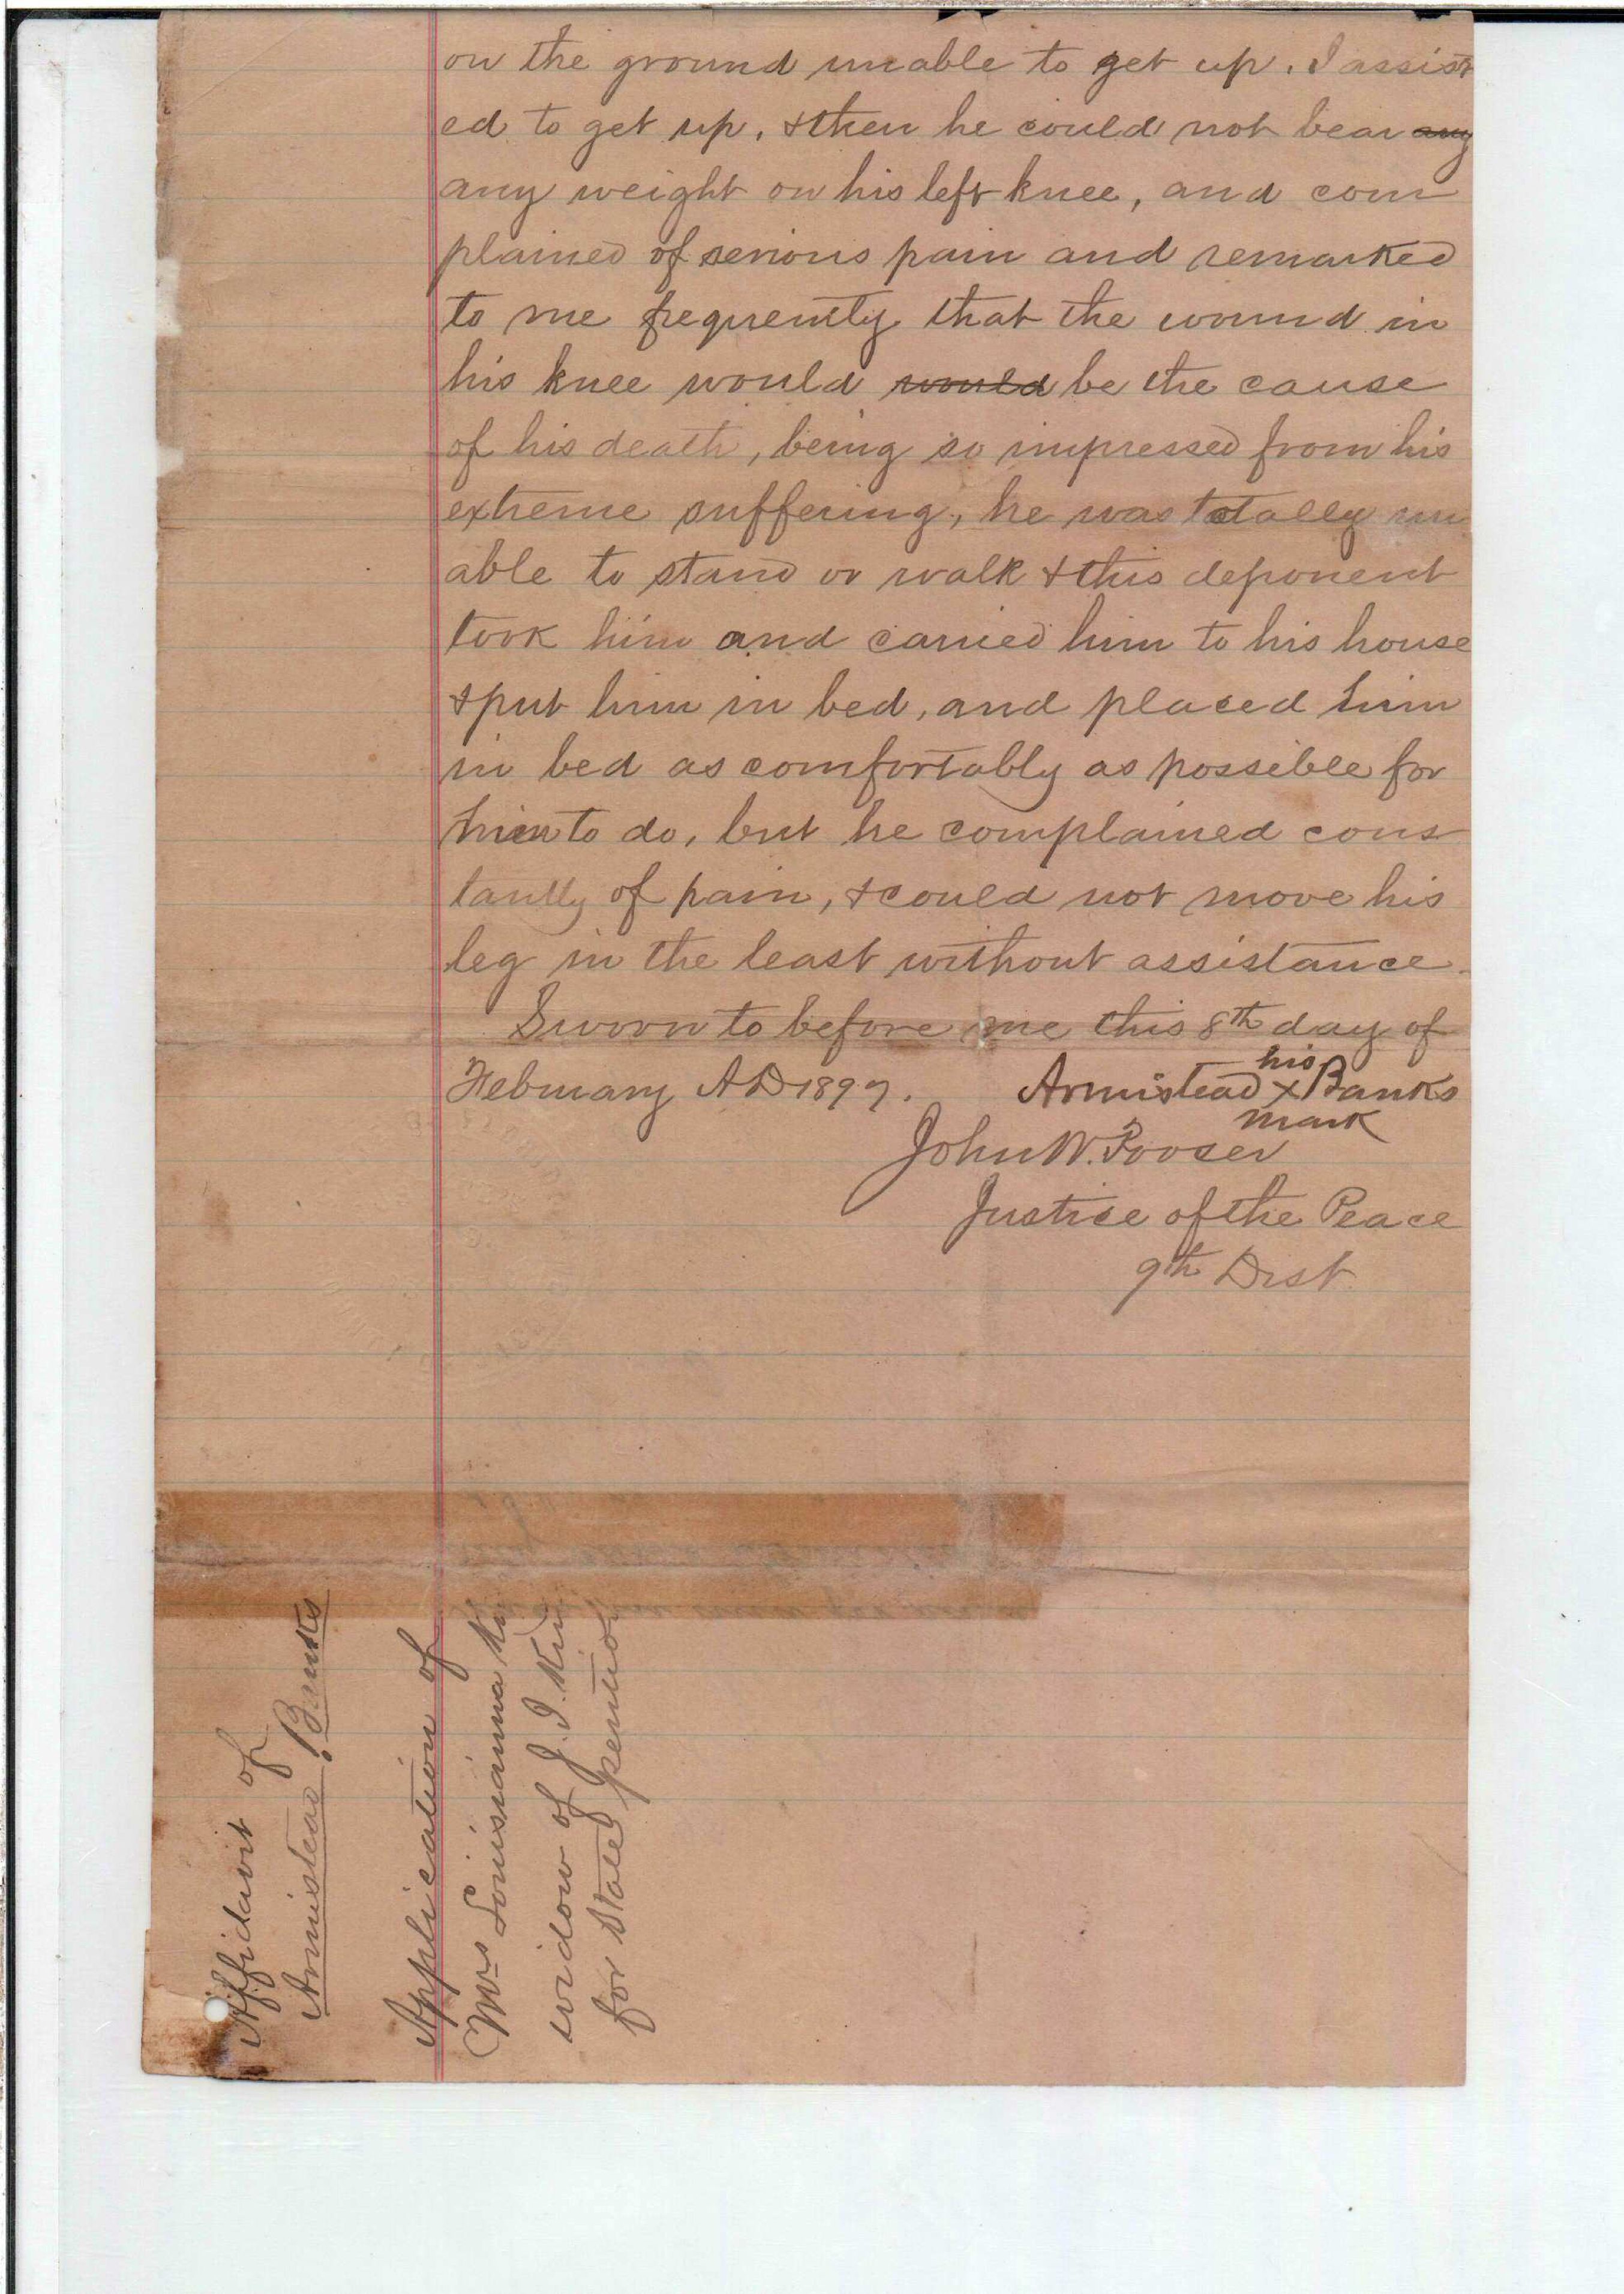 on the ground unable to get up. I assist
ed to get up, & then he could not bear any
any weight on his left knee, and com
plained of serious pain and remarked
to me frequently that the wound in
his knee would would be the cause
of his death, being so impressed from his
extreme suffering, he was totally un
able to stand or walk & this deponent
took him and carried him to his house
& put him in bed, and placed him
in bed as comfortably as possible for
him to do, but he complained cons
tantly of pain, & could not move his
leg in the least without assistance.
Sworn to before me this 8th day of
February AD 1897. Armistead his x mark Banks
John W. Pooser
Justice of the Peace
9th Dist
Affidavit of
Armistead Banks
Application of
Mrs Louisianna
widow of J. I.
for State pention